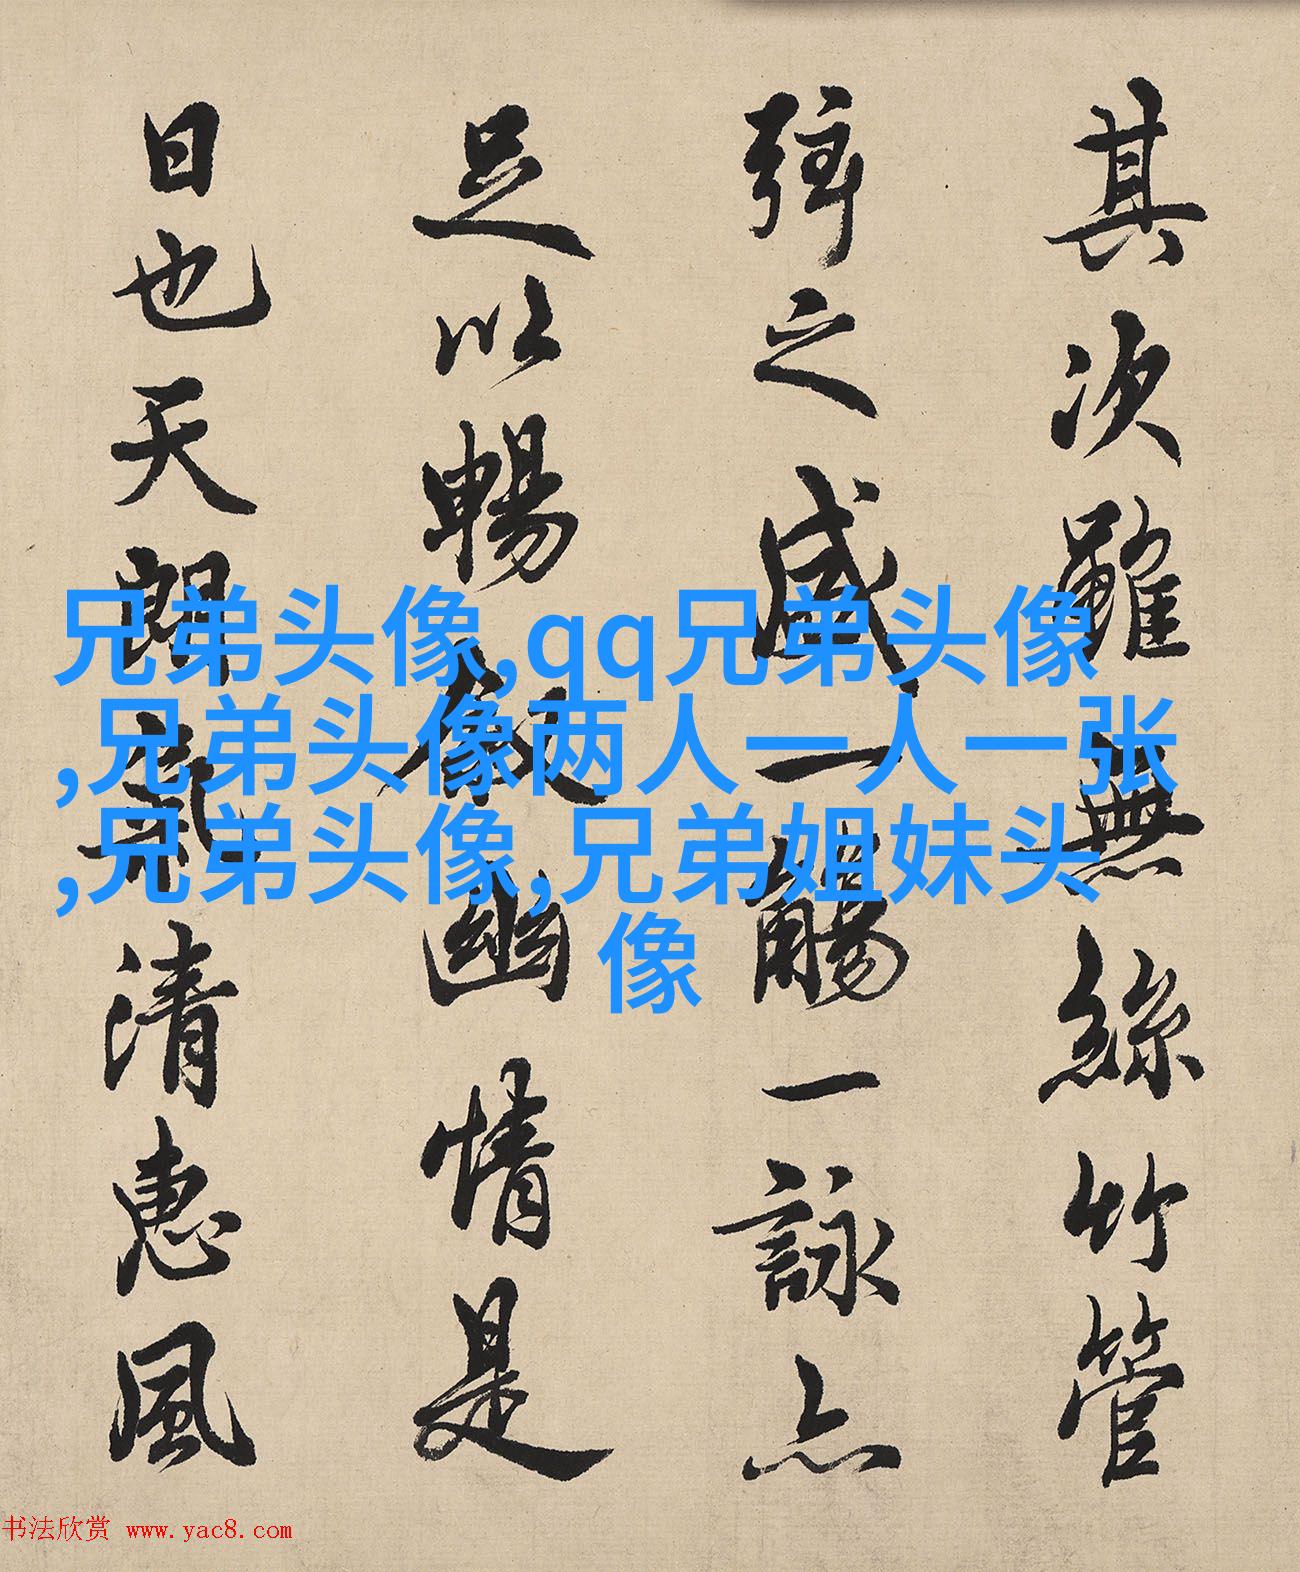 其次雖無絲竹管
弦之盛一觴一詠亦
足以暢叙幽情是
日也天朗氣清惠風
兄弟头像,qq兄弟头像
,兄弟头像两人一人一张
,兄弟头像,兄弟姐妹头
像
书法欣赏 www.yac8.com